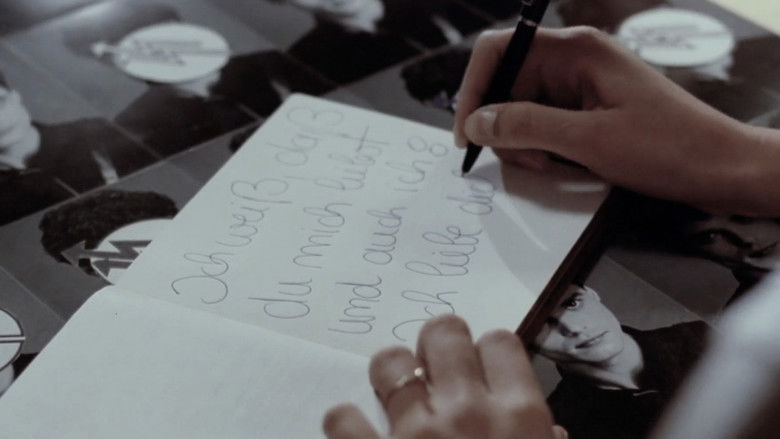 Ich weiß, daß
du mich liebst
und auch ich:
Ich liebe dic